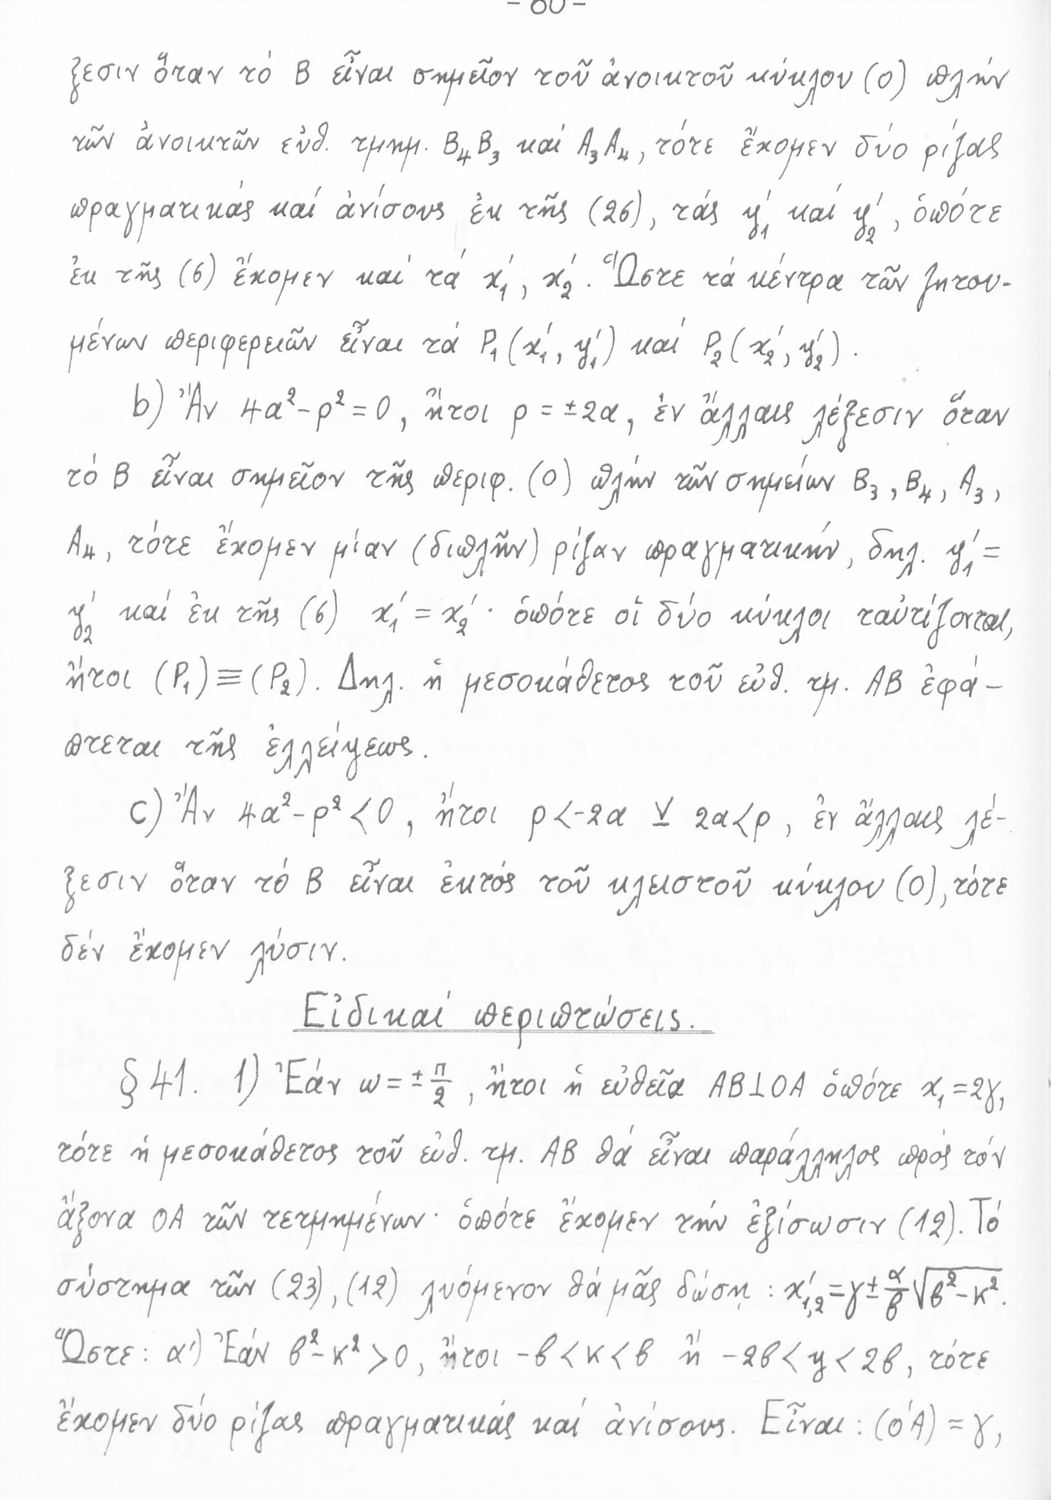 - 60 -
ξεσιν ὅταν τό Β εἶναι σημεῖον τοῦ ἀνοικτοῦ κύκλου (Ο) πλήν
τῶν ἀνοικτῶν εὐθ. τμημ. Β₄Β₃ καί Α₃Α₄, τότε ἔχομεν δύο ρίζας
πραγματικάς καί ἀνίσους ἐκ τῆς (26), τάς y₁′ καί y₂′, ὁπότε
ἐκ τῆς (6) ἔχομεν καί τά x₁′, x₂′. Ὥστε τά κέντρα τῶν ζητου-
μένων περιφερειῶν εἶναι τά P₁(x₁′, y₁′) καί P₂(x₂′, y₂′).
b) Ἄν 4α²-ρ²=0, ἤτοι ρ=±2α, ἐν ἄλλαις λέξεσιν ὅταν
τό Β εἶναι σημεῖον τῆς περιφ. (Ο) πλήν τῶν σημείων Β₃, Β₄, Α₃,
Α₄, τότε ἔχομεν μίαν (διπλῆν) ρίζαν πραγματικήν, δηλ. y₁′=
y₂′ καί ἐκ τῆς (6) x₁′=x₂′· ὁπότε οἱ δύο κύκλοι ταὐτίζονται,
ἤτοι (P₁)≡(P₂). Δηλ. ἡ μεσοκάθετος τοῦ εὐθ. τμ. ΑΒ ἐφά-
πτεται τῆς ἐλλείψεως.
c) Ἄν 4α²-ρ²<0, ἤτοι ρ<-2α ⊻ 2α<ρ, ἐν ἄλλαις λέ-
ξεσιν ὅταν τό Β εἶναι ἐκτός τοῦ κλειστοῦ κύκλου (Ο), τότε
δέν ἔχομεν λύσιν.
Εἰδικαί περιπτώσεις.
§ 41. 1) Ἐάν ω=±π/2, ἤτοι ἡ εὐθεῖα ΑΒ⊥ΟΑ ὁπότε x₁=2γ,
τότε ἡ μεσοκάθετος τοῦ εὐθ. τμ. ΑΒ θά εἶναι παράλληλος πρός τόν
ἄξονα ΟΑ τῶν τετμημένων· ὁπότε ἔχομεν τήν ἐξίσωσιν (12). Τό
σύστημα τῶν (23), (12) λυόμενον θά μᾶς δώσῃ : x′₁,₂=γ±α/β√β²-κ².
Ὥστε: α′) Ἐάν β²-κ²>0, ἤτοι -β<κ<β ἤ -2β<y<2β, τότε
ἔχομεν δύο ρίζας πραγματικάς καί ἀνίσους. Εἶναι: (Ο′Α)=γ,